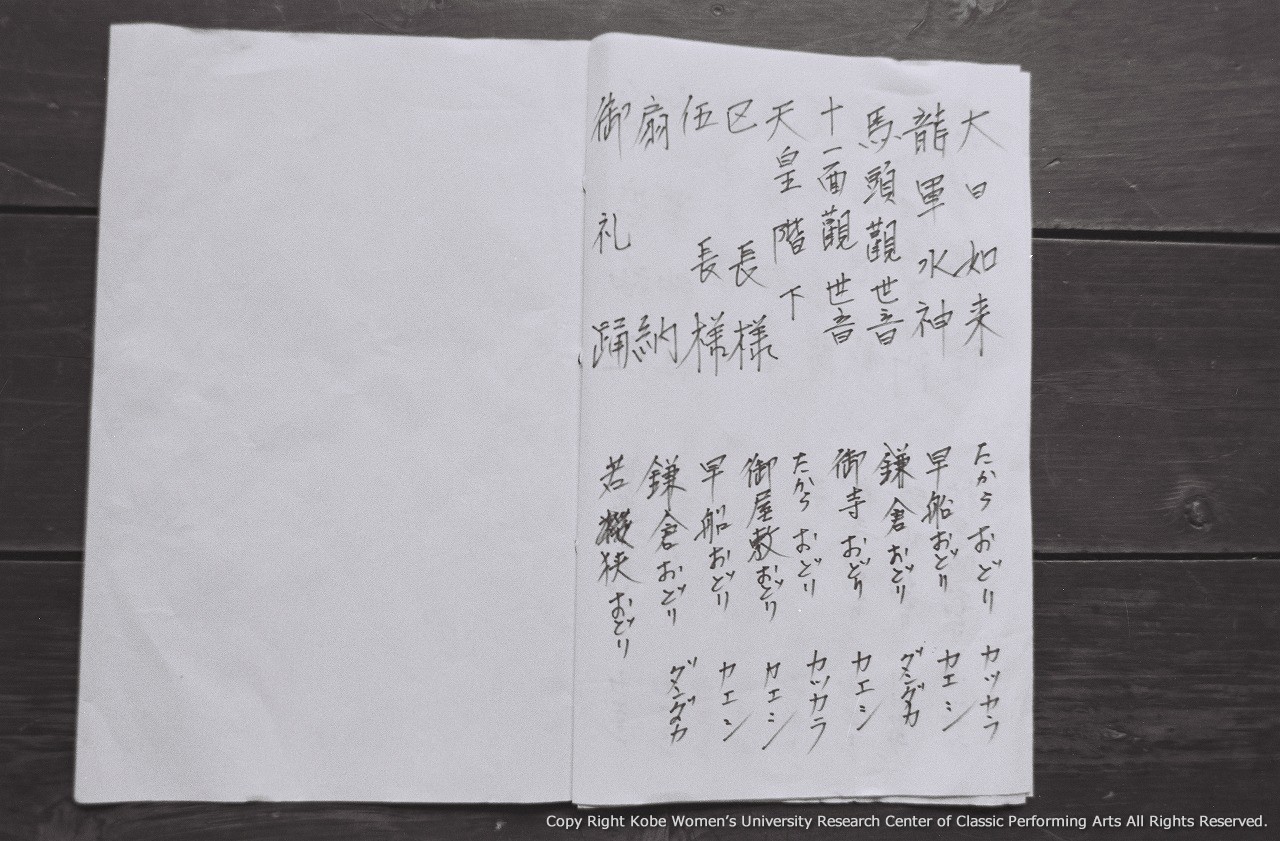 大日如来 たからおどり カッカラ
龍軍水神 早船おどり カエシ
馬頭觀世音 鎌倉おどり ダンダカ
十一面觀世音 御寺おどり カエシ
天皇階下 たからおどり カッカラ
区長様 御屋敷おどり カエシ
伍長様 早船おどり カエシ
扇納 鎌倉おどり ダンダカ
御礼踊 若狭おどり
Copy Right Kobe Women's University Research Center of Classic Performing Arts All Rights Reserved.